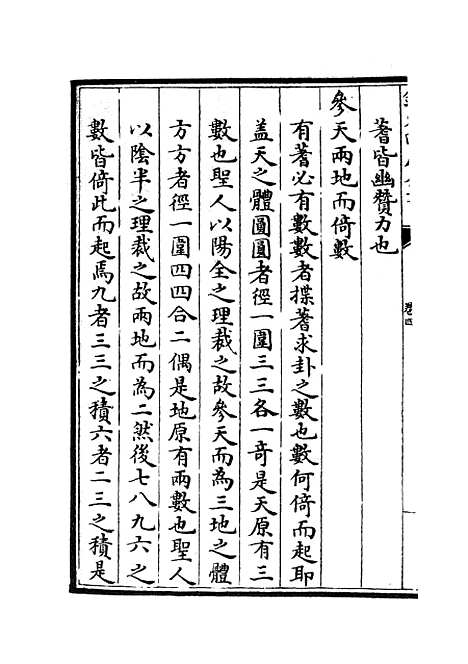 卷四
蓍皆幽贊力也
參天兩地而倚數
有蓍必有數數者揲蓍求卦之數也數何倚而起耶
蓋天之體圓圓者徑一圍三三各一奇是天原有三
數也聖人以陽全之理裁之故參天而為三地之體
方方者徑一圍四四合二偶是地原有兩數也聖人
以陰半之理裁之故兩地而為二然後七八九六之
數皆倚此而起焉九者三三之積六者二三之積是